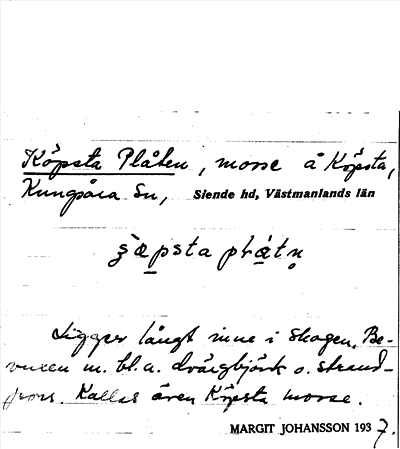 Köpsta Plåten, mosse å Köpsta,
Kungsåra Sn, Siende hd, Västmanlands län
plåtn̥
Ligger långt inne i skogen. Be-
vuxen m. bl. a. dvärgbjörk o. strand-
pors. Kallas även Köpsta mosse.
MARGIT JOHANSSON 1937.